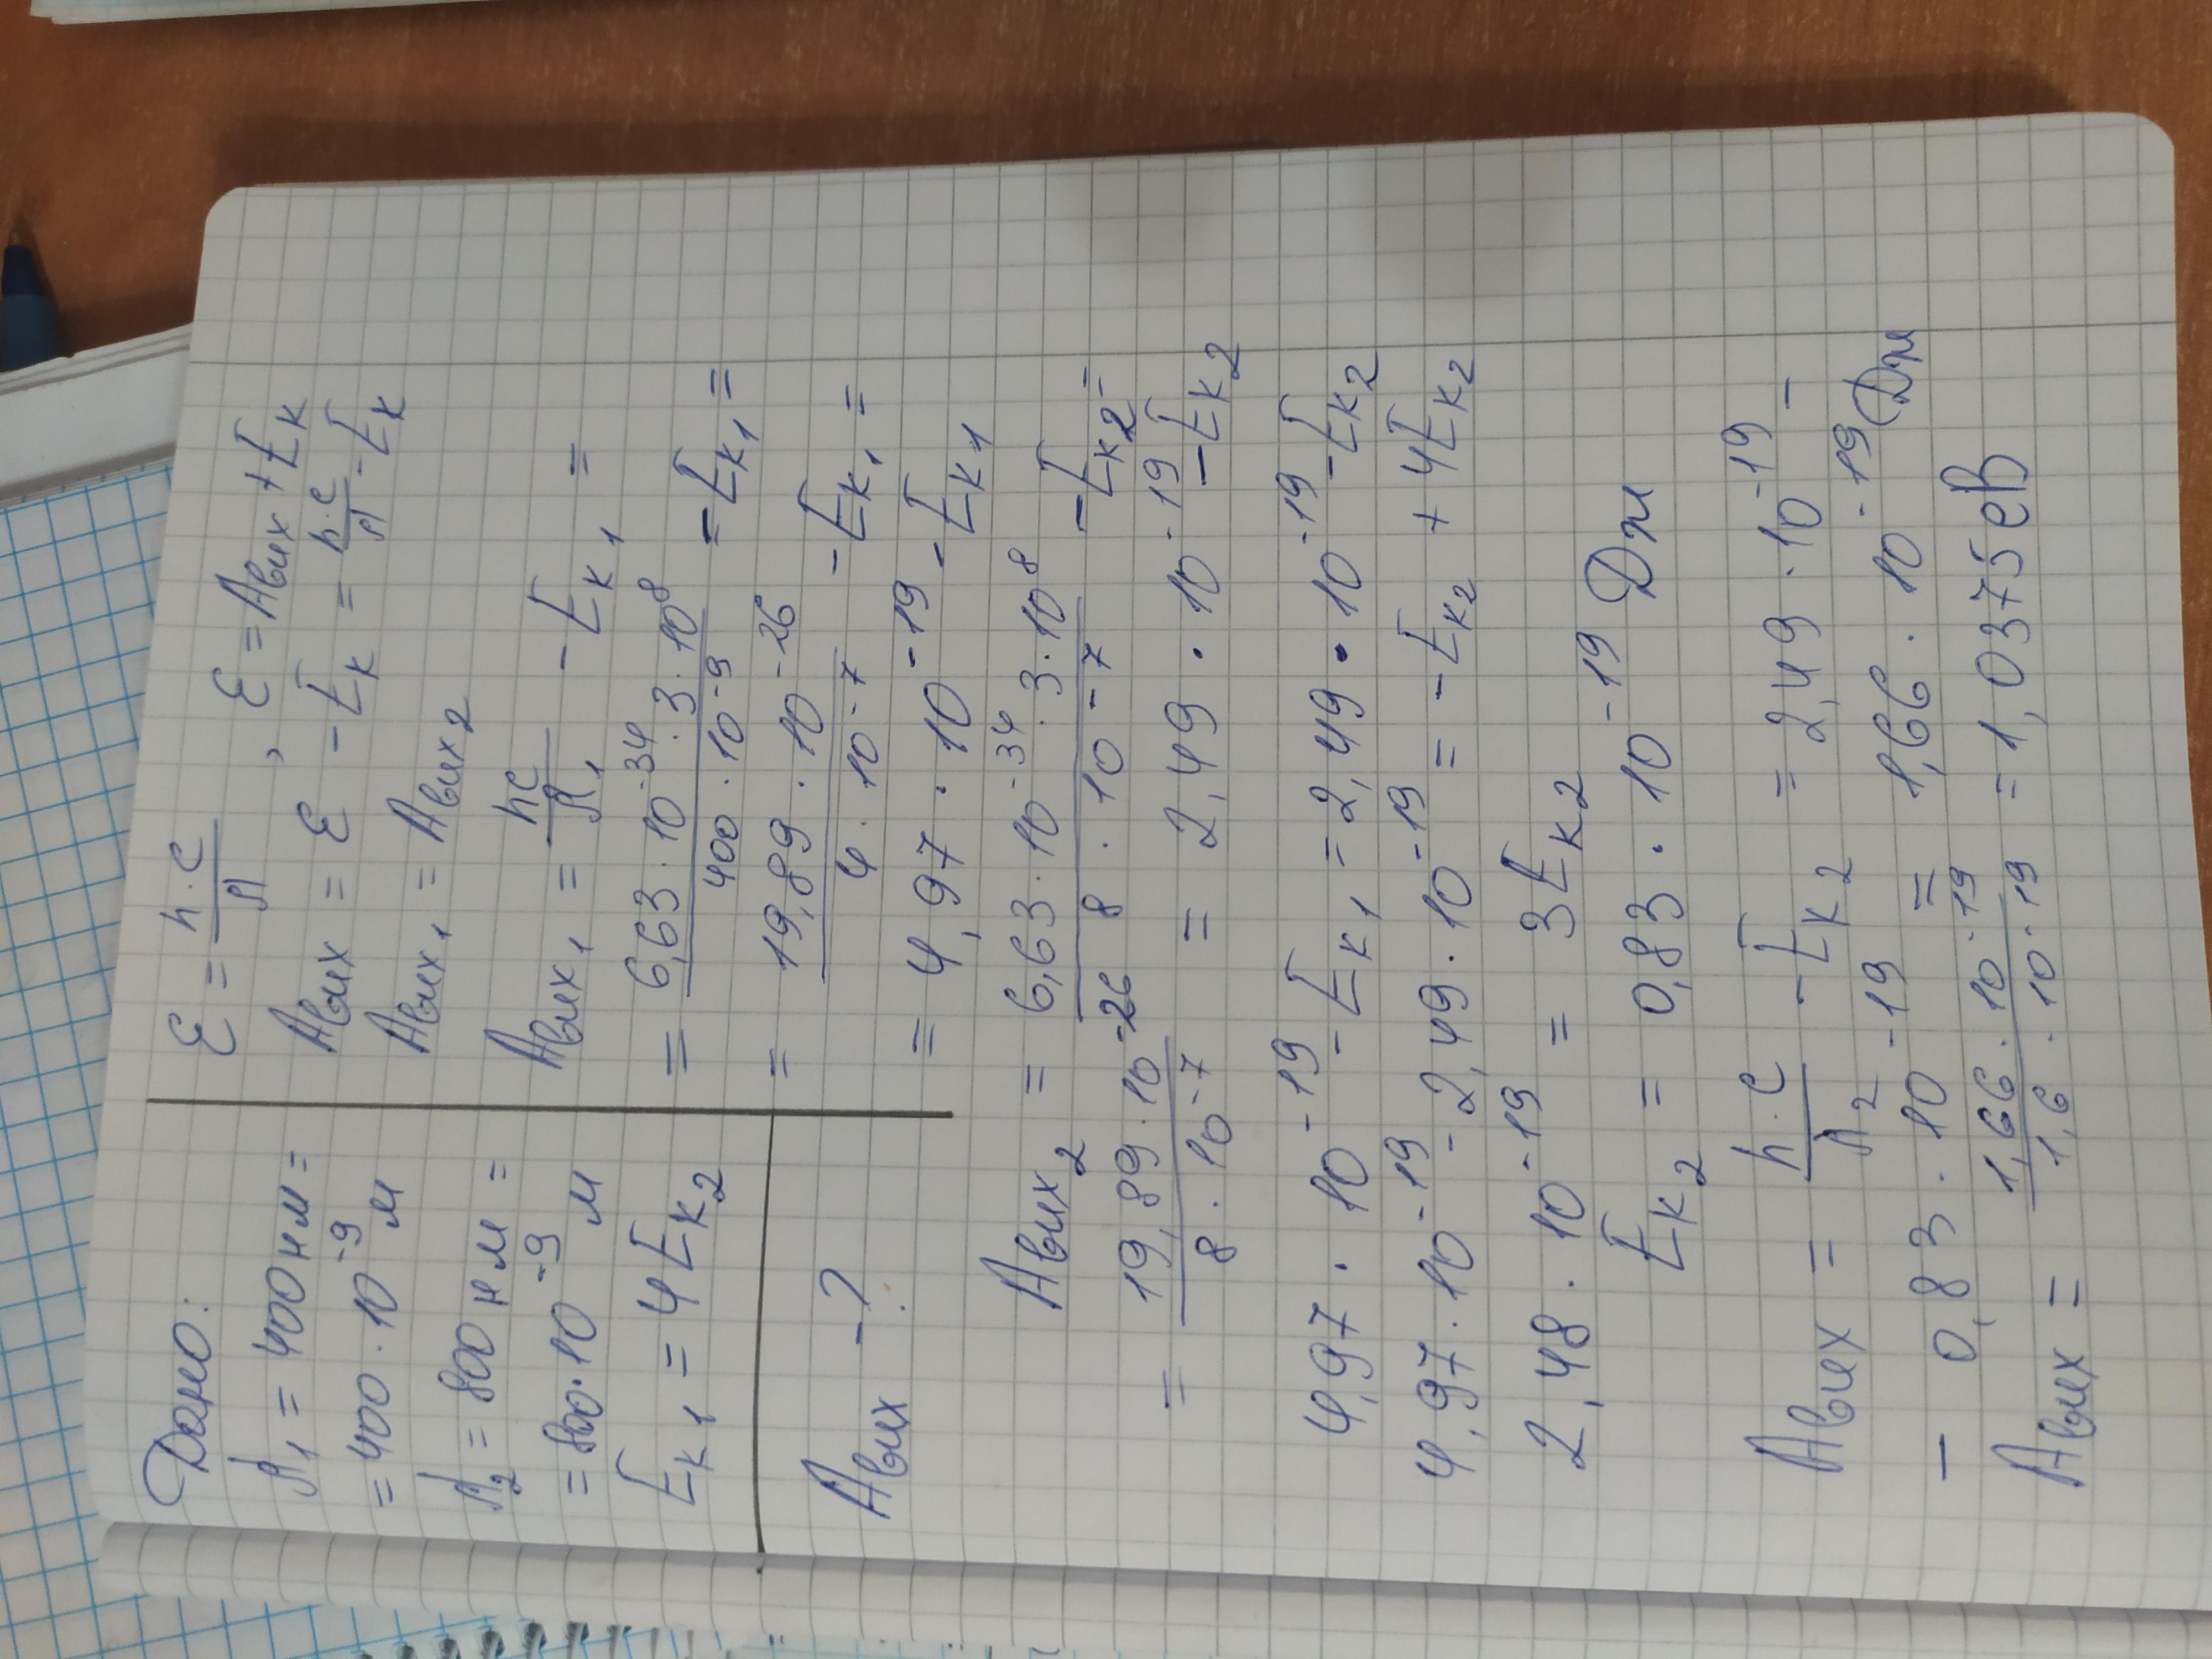 Дано:
λ₁ = 400 нм =
= 400 · 10⁻⁹ м
λ₂ = 800 нм =
= 800 · 10⁻⁹ м
Eк₁ = 4Eк₂
Aвих -?
ε = h·c/λ , ε = Aвих + Eк
Aвих = ε - Eк = h·c/λ - Eк
Aвих₁ = Aвих₂
Aвих₁ = hc/λ₁ - Eк₁ =
= 6,63 · 10⁻³⁴ · 3 · 10⁸ / 400 · 10⁻⁹ - Eк₁ =
= 19,89 · 10⁻²⁶ / 4 · 10⁻⁷ - Eк₁ =
= 4,97 · 10⁻¹⁹ - Eк₁
Aвих₂ = 6,63 · 10⁻³⁴ · 3 · 10⁸ / 8 · 10⁻⁷ - Eк₂ =
= 19,89 · 10⁻²⁶ / 8 · 10⁻⁷ = 2,49 · 10⁻¹⁹ - Eк₂
4,97 · 10⁻¹⁹ - Eк₁ = 2,49 · 10⁻¹⁹ - Eк₂
4,97 · 10⁻¹⁹ - 2,49 · 10⁻¹⁹ = - Eк₂ + 4Eк₂
2,48 · 10⁻¹⁹ = 3Eк₂
Eк₂ = 0,83 · 10⁻¹⁹ Дж
Aвих = h·c/λ₂ - Eк₂ = 2,49 · 10⁻¹⁹ -
- 0,83 · 10⁻¹⁹ = 1,66 · 10⁻¹⁹ Дж
Aвих = 1,66 · 10⁻¹⁹ / 1,6 · 10⁻¹⁹ = 1,0375 еВ